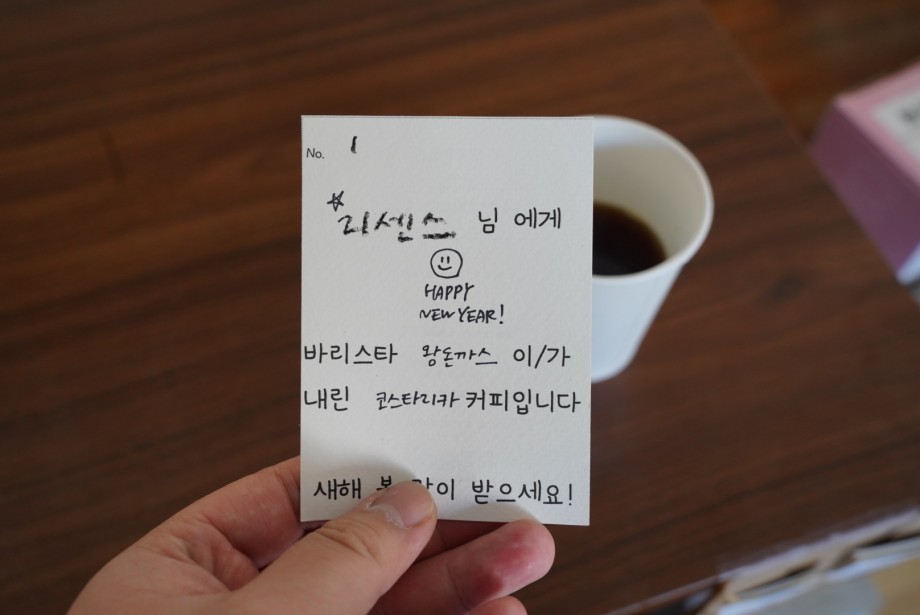 No. 1
리센스 님 에게
HAPPY
NEW YEAR!
바리스타 왕돈까스 이/가
내린 코스타리카 커피입니다
새해 복 많이 받으세요!